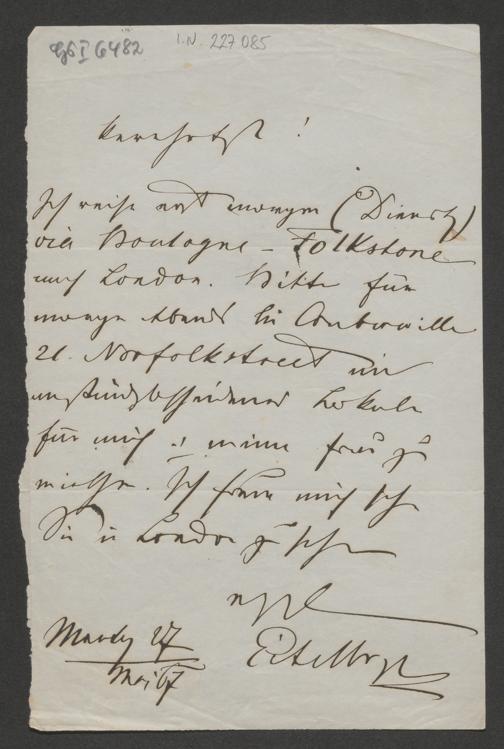 I.N. 227.085
Verehrtester!
Ich reise erst morgen (Dienstg)
via Boulogne – Folkstone
nach London. Bitte für
morgen Abends bei
21. Norfolkstreet ein
anständig bescheidenes Lokale
für mich u meine Frau zu
miethen. Ich freue mich sehr
Sie in London zu sehen
Eitelberger
Montg 27
Mai 67